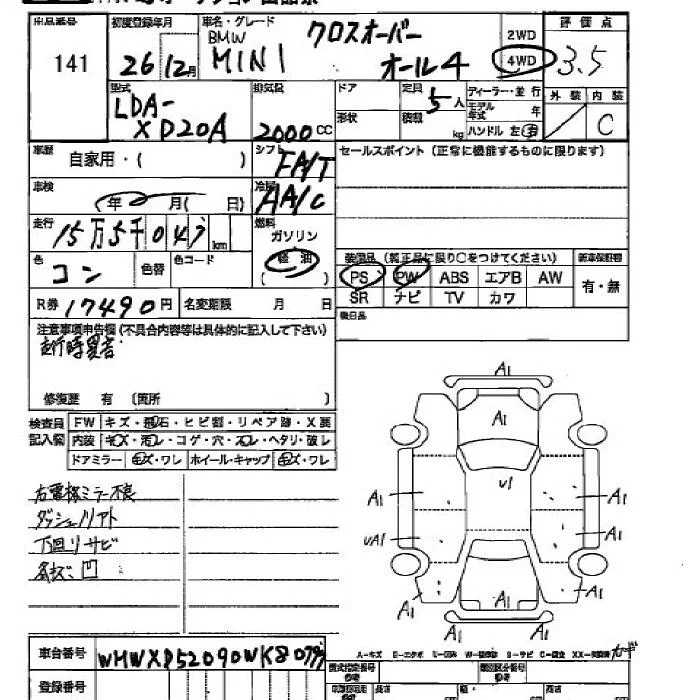 出品番号 初度登録年月 車名・グレード 評価点
141 26年12月 BMW MINI クロスオーバー オール4 2WD 4WD 3.5
型式 排気量 ドア 定員 ディーラー・並行 外装 内装
LDA-XD20A 2000cc 形状 積載 5人 kg モデル年式 年 ハンドル 左 右 C
車歴 自家用・( ) シフト FA/T セールスポイント(正常に機能するものに限ります)
車検 年 月( 日) 冷房 AA/C
走行 15万5千047km 燃料 ガソリン 軽油 ( )
色 コン 色替 色コード 装備品(純正品に限り○をつけてください) 新車保証書
PS PW ABS エアB AW 有・無
R券 17490円 名変期限 月 日 SR ナビ TV カワ
注意事項申告欄(不具合内容等は具体的に記入して下さい) 後日品
走行時異音
修復歴 有 (箇所 )
検査員記入欄 FW キズ・飛石・ヒビ割・リペア跡・X要
内装 キズ・汚レ・コゲ・穴・スレ・ヘタリ・破レ
ドアミラー キズ・ワレ ホイール・キャップ キズ・ワレ
A1
A1
U1
A1 A1
UA1 A1
A1 A1 A1
A1
右電格ミラー不良
ダッシュノリアト
下回りサビ
各キズ凹
車台番号
A-キズ
登録番号 型式指定番号 類別区分番号
長さ 幅 高さ